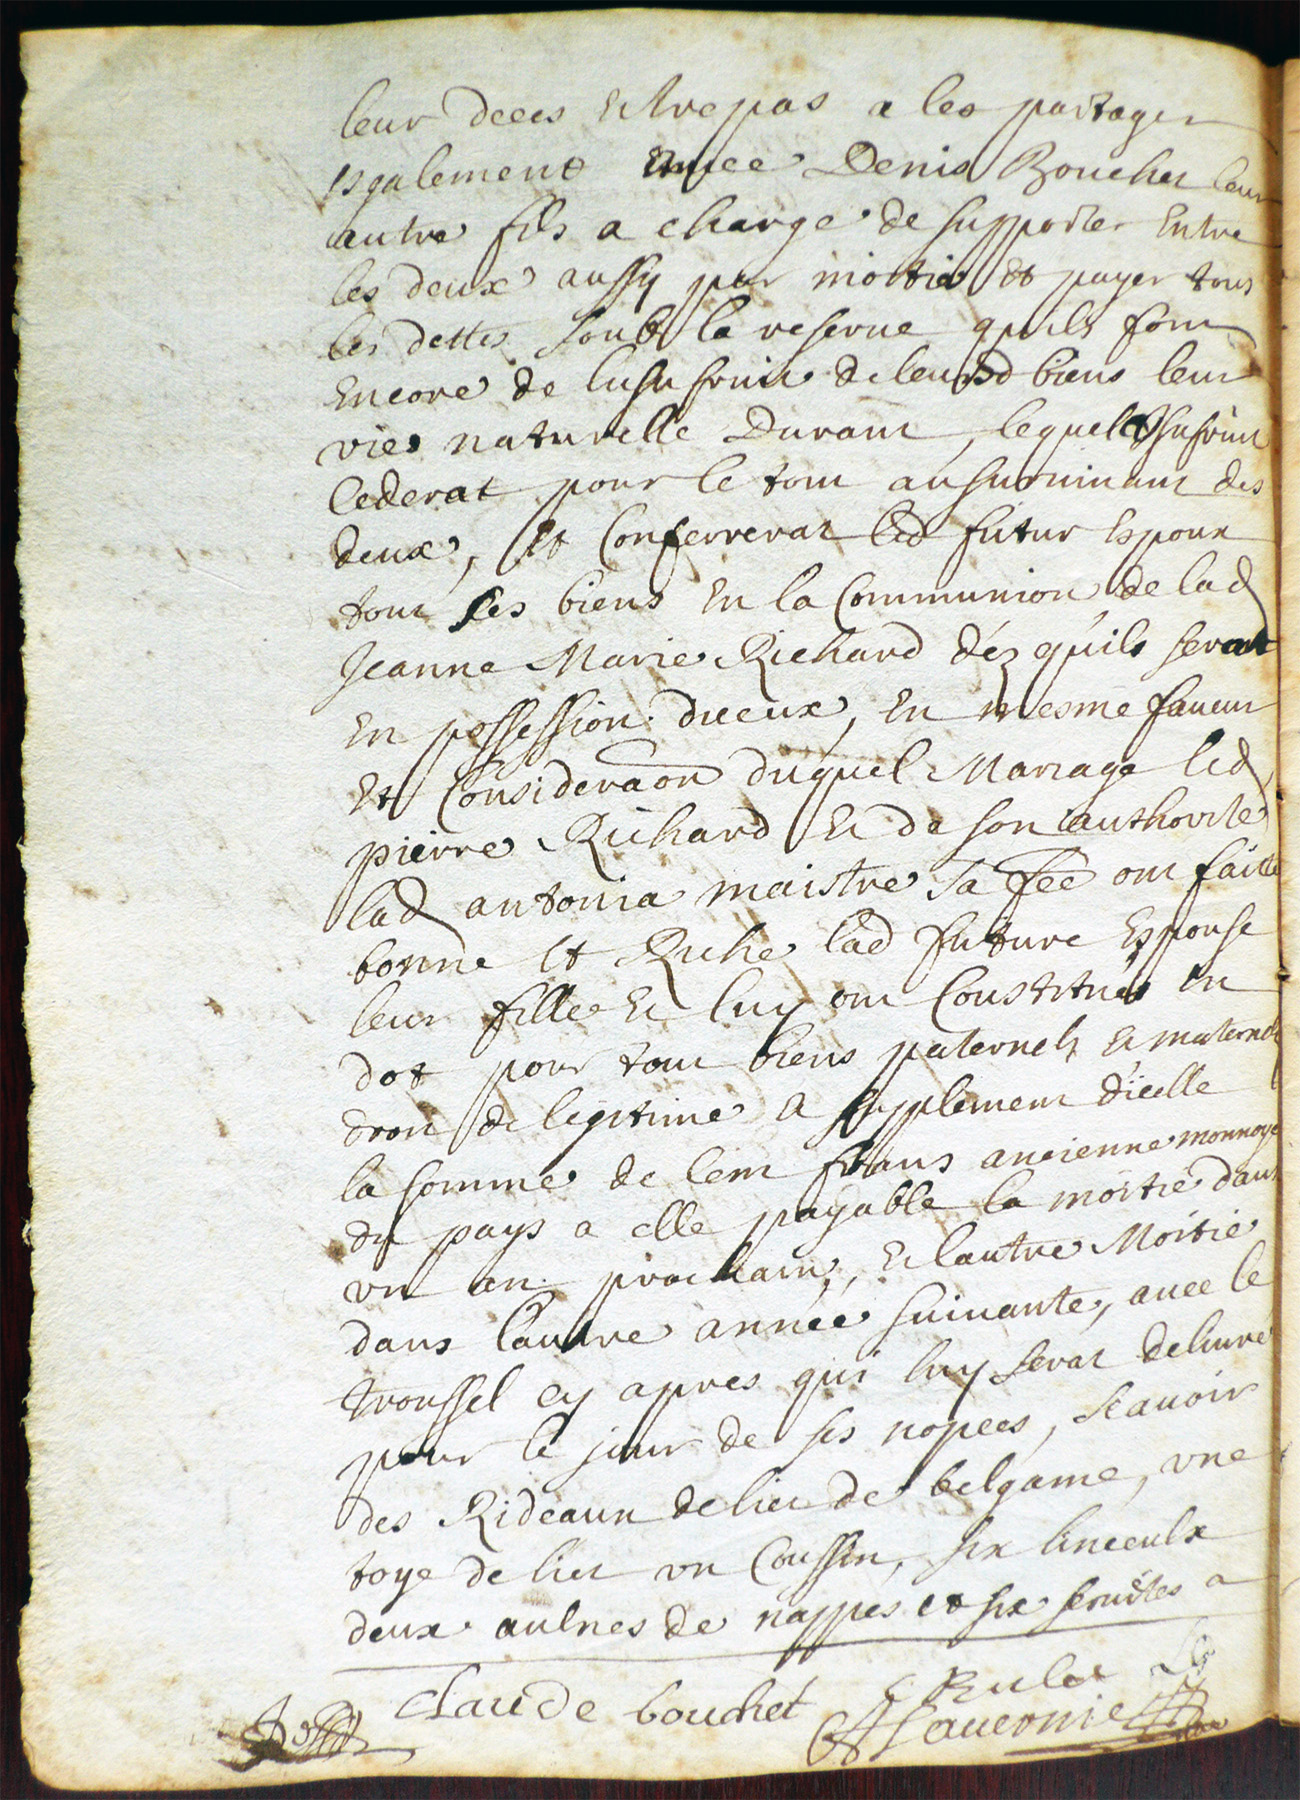 leur deces et trepas a les partager
esgalement avvec Denis Bouchet leur
autre fils a charge de supporter Entre
les deux aussy par moitie et payer tous
les dettes soub la reserve quils font
Encore de lusufruit de leursd biens leur
vie naturelle Durant, lequel Usufruit
cederat pour le tout au survivant des
deux, et Conferrerat led futur Espoux
tout ses biens en la Communion de lad
Jeanne Marie Richard déz quils serat
en possession diceux, En mesme faveur
et Consideraon duquel Mariage led
pierre Richard et de son authorite
lad antonia maistre sa fee ont faitte
bonne et Riche lad future Espouse
leur fille et luy ont Constitués En
dot pour tout biens paternelz et maternelz
droit de legitime et supplement dicelle
la somme de Cent frans ancienne monnoye
du pays a elle payable la moitié dans
un an prochain, et lautre Moitie
dans lautre année suivante, avec le
troussel cy apres qui luy serat delivré
pour le jour de ses nopces, scavoir
des Rideaux de lict de belgame, une
toye de lict un Coussin, six linceulx
deux aulnes de nappes et six serviētes a
claude bouchet